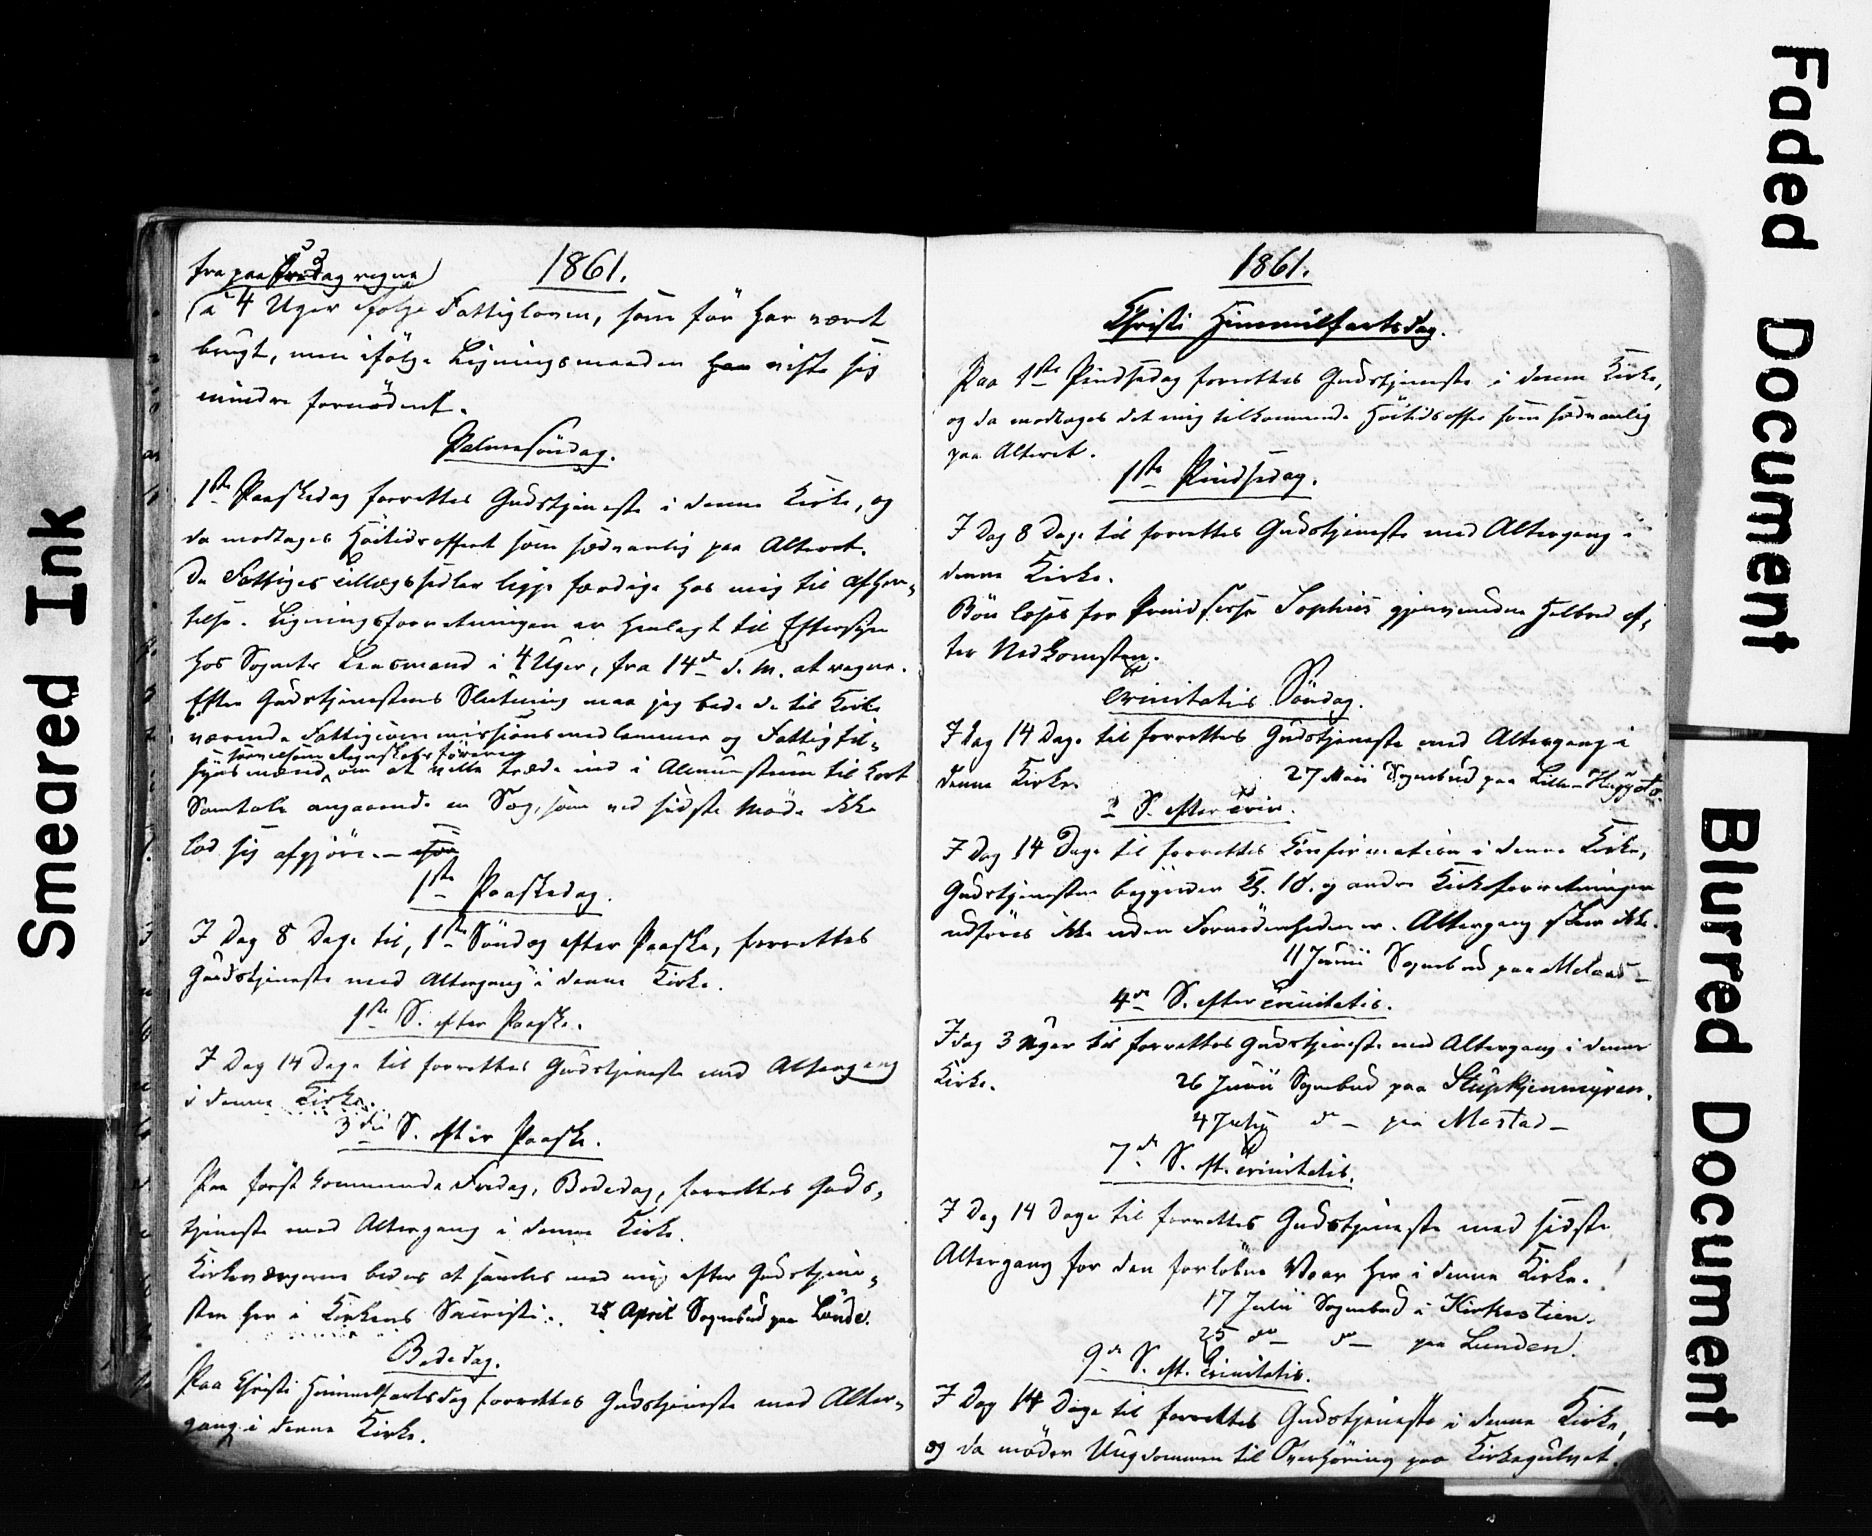 Smeared Ink
Faded Document
Blurred Document
1861.
fra paa Fredag regne)
(a 4 Uger ifølge Fattigloven, som før har været
brugt, men ifölge Ligningsmaaden har viste sig
mindre fornødent.
Palmesöndag.
1ste Paaskedag forrettes Gudstjeneste i denne Kirke, og
da modtages Höitidsofferet som sædvanlig paa Alteret.
De Fattiges Tillægssedler ligge færdige hos mig til Afhen-
telse. Ligningsforretningen er henlagt til Eftersyn
hos Sognets Lensmand i 4 Uger, fra 14de d. M. at regne.
Efter Gudstjenestens Slutning maa jeg bede de til Kirke
værende Fattigcommissionsmedlemmer og Fattigtil-
synsmænd, om at ville træde ind i til kort
Samtale angaaende en Sag, som ved sidste Möde ikke
lod sig afgjöre. —
1ste Paaskedag.
I Dag 8 Dage til, 1ste Söndag efter Paaske, forrettes
Gudstjeneste med Altergang i denne Kirke.
1ste S. efter Paaske.
I Dag 14 Dage til forrettes Gudstjeneste med Altergang
i denne Kirke.
3die S. efter Paaske.
Paa först kommende Fredag, Bededag, forrettes Guds-
tjeneste med Altergang i denne Kirke.
Kirkeværgerne bedes at samles med mig efter Gudstjene-
sten her i Kirkens Sacristi. 25 April Sognebud paa Lunde.
Bededag.
Paa Christi Himmelfartsdag forrettes Gudstjeneste med Alter-
gang i denne Kirke.
1861.
Christi Himmelfartsdag.
Paa 1ste Pindsedag forrettes Gudstjeneste i denne Kirke,
og da modtages det mig tilkommende Höitidsoffer som sædvanlig
paa Alteret.
1ste Pindsedag.
I Dag 8 Dage til forrettes Gudstjeneste med Altergang i
denne Kirke.
Bön læses for Prindsesse Sophies gjenvundne Helbred ef-
ter Nedkomsten.
Trinitatis Söndag.
I Dag 14 Dage til forrettes Gudstjeneste med Altergang i
denne Kirke. 27 Maii Sognebud paa Lille-
2 S. efter Trin.
I Dag 14 Dage til forrettes Confirmation i denne Kirke,
Gudstjenesten begynder Kl. 10. og andre Kirkeforretninger
udföres ikke uden Fornödenheden er. Altergang skeer ikke.
11 Junii Sognebud paa
4de S. efter Trinitatis.
I dag 3 Uger til forrettes Gudstjeneste med Altergang i denne
Kirke. 26 Junii Sognebud paa
4 July do — paa Mostad —
7de S. eft. Trinitatis.
I Dag 14 Dage til forrettes Gudstjeneste med sidste
Altergang for den forløbne Vaar her i denne Kirke.
17 Julii Sognebud i Kirkestien.
25 do — do — paa Lunden.
9de S. eft. Trinitatis.
I Dag 14 Dage til forrettes Gudstjeneste i denne Kirke,
og da möder Ungdommen til Overhöring paa Kirkegulvet.